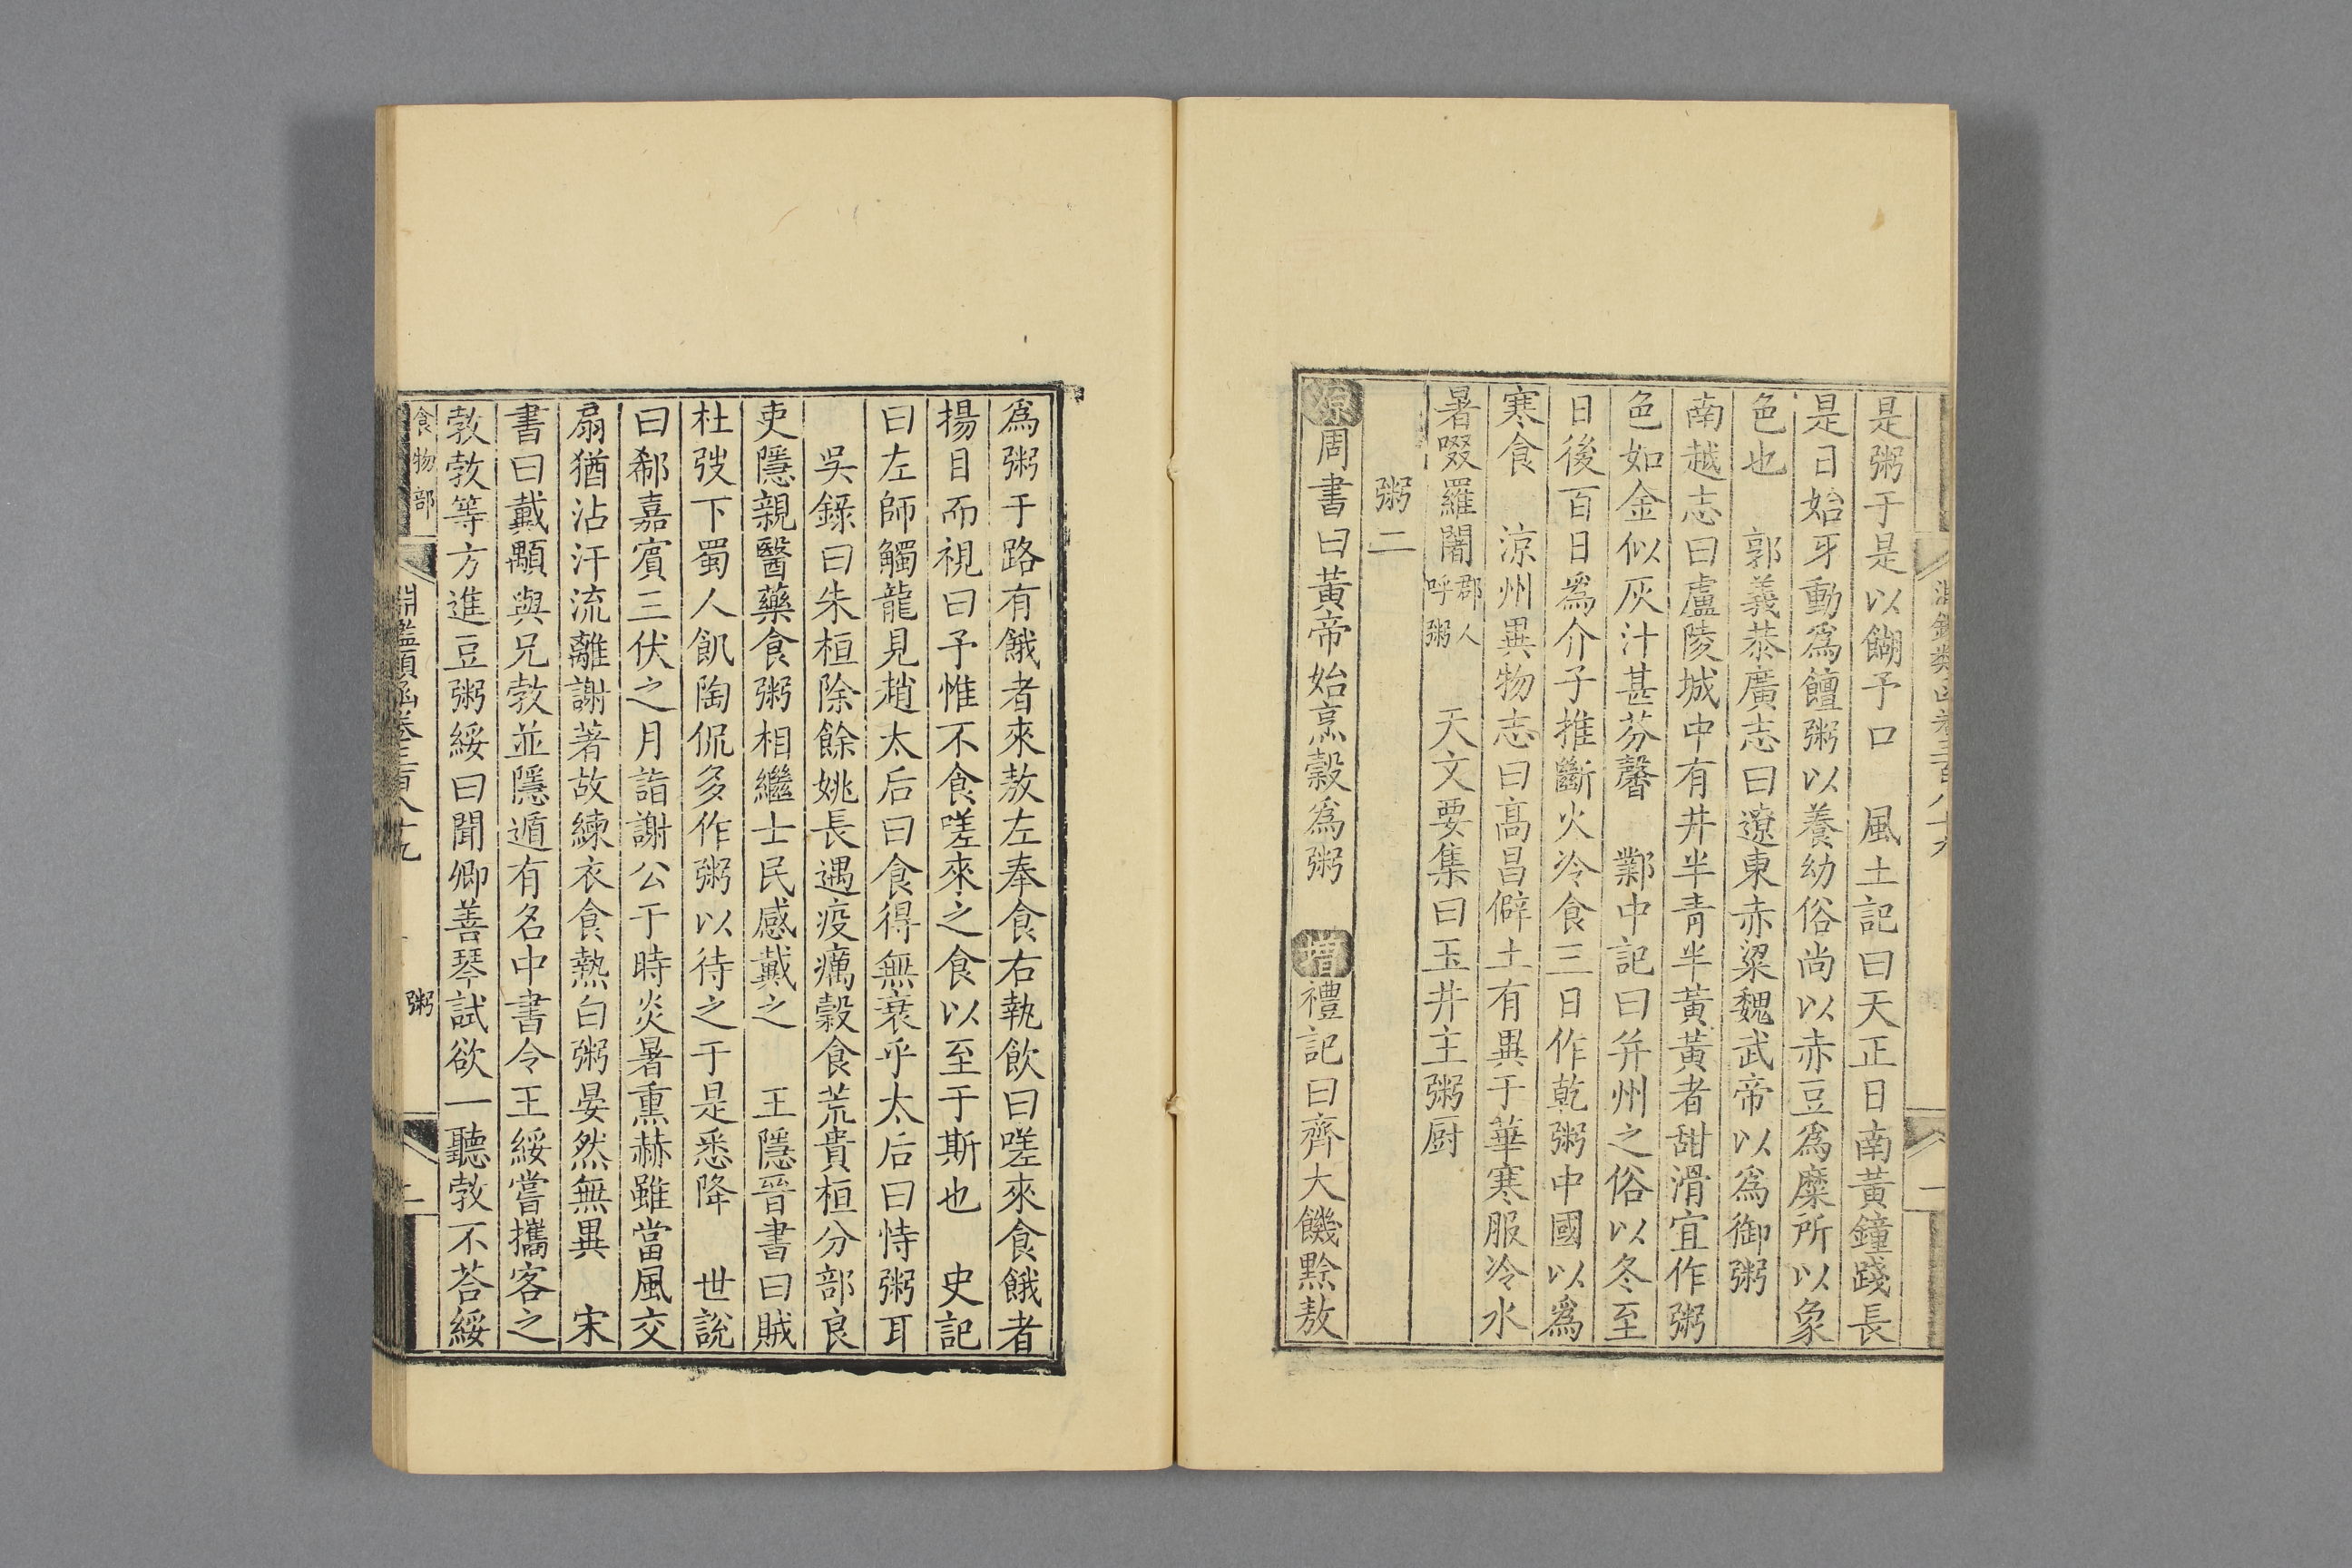 是粥于是以餬予口　風土記曰天正日南黃鐘踐長
是日始牙動爲饘粥以養幼俗尚以赤豆爲糜所以象
色也　郭義恭廣志曰遼東赤粱魏武帝以爲御粥
南越志曰盧陵城中有井半青半黃黃者甜滑宜作粥
色如金似灰汁甚芬馨　鄴中記曰并州之俗以冬至
日後百日爲介子推斷火冷食三日作乾粥中國以爲
寒食　涼州異物志曰高昌僻土有異于華寒服冷水
暑啜羅闍郡人呼粥　天文要集曰玉井主粥厨
粥二
原周書曰黃帝始烹穀爲粥　增禮記曰齊大饑黔敖
爲粥于路有餓者來敖左奉食右執飲曰嗟來食餓者
揚目而視曰予惟不食嗟來之食以至于斯也　史記
曰左師觸龍見趙太后曰食得無衰乎太后曰恃粥耳
吳錄曰朱桓除餘姚長遇疫癘穀食荒貴桓分部良
吏隱親醫藥食粥相繼士民感戴之　王隱晉書曰賊
杜弢下蜀人飢陶侃多作粥以待之于是悉降　世說
曰郗嘉賓三伏之月詣謝公于時炎暑熏赫雖當風交
扇猶沾汗流離謝著故練衣食熱白粥晏然無異　宋
書曰戴顒與兄敩並隱遁有名中書令王綏嘗攜客之
敩敩等方進豆粥綏曰聞卿善琴試欲一聽敩不荅綏
食物部
淵鑑類函卷三百八十九
粥
二